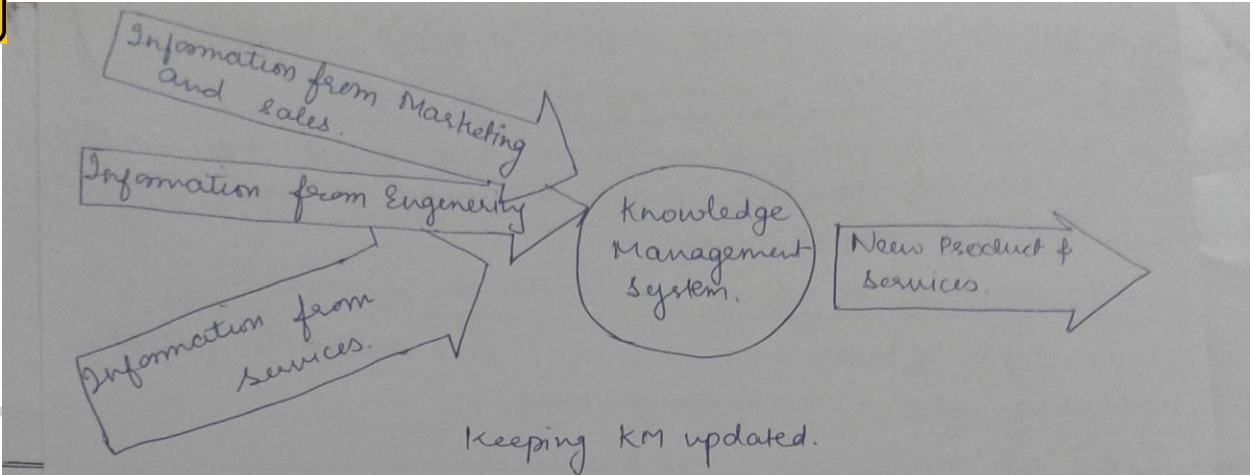 Information from Marketing
and sales.
Information from Engenerity
Information from
services.
Knowledge
Management
System.
New Product &
Services.
Keeping KM updated.